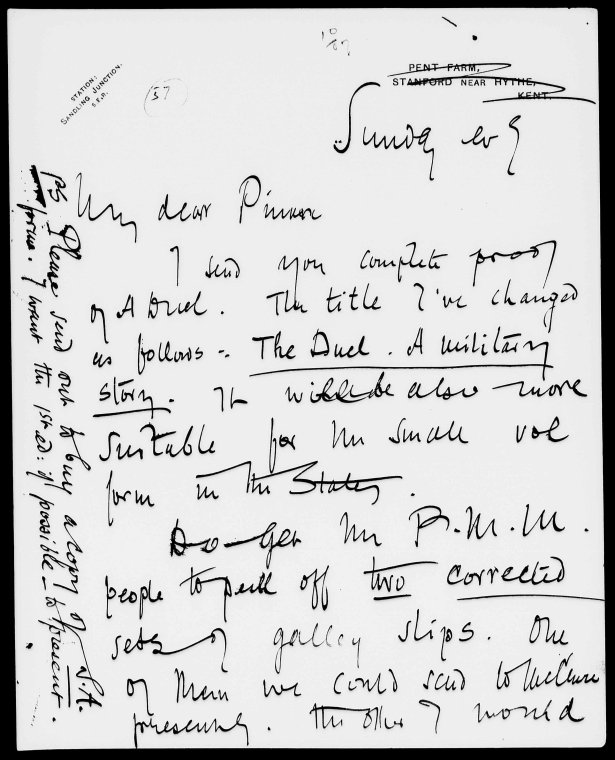 10
07
PENT FARM,
STANFORD NEAR HYTHE,
KENT.
STATION:
SANDLING JUNCTION.
S.E.R.
57
Sunday evg
My dear Pinker
I send you complete proof
of A Duel. The title I've changed
as follows - The Duel. A military
story. It will be also more
suitable for the small vol
form in the States.
Do get the P.M.M.
people to pull off two corrected
sets of galley slips. One
of them we could send to McClure
presently. The other I would
PS Please send out to buy a copy of S.A.
prime. I want the 1st ed: if possible - to present.